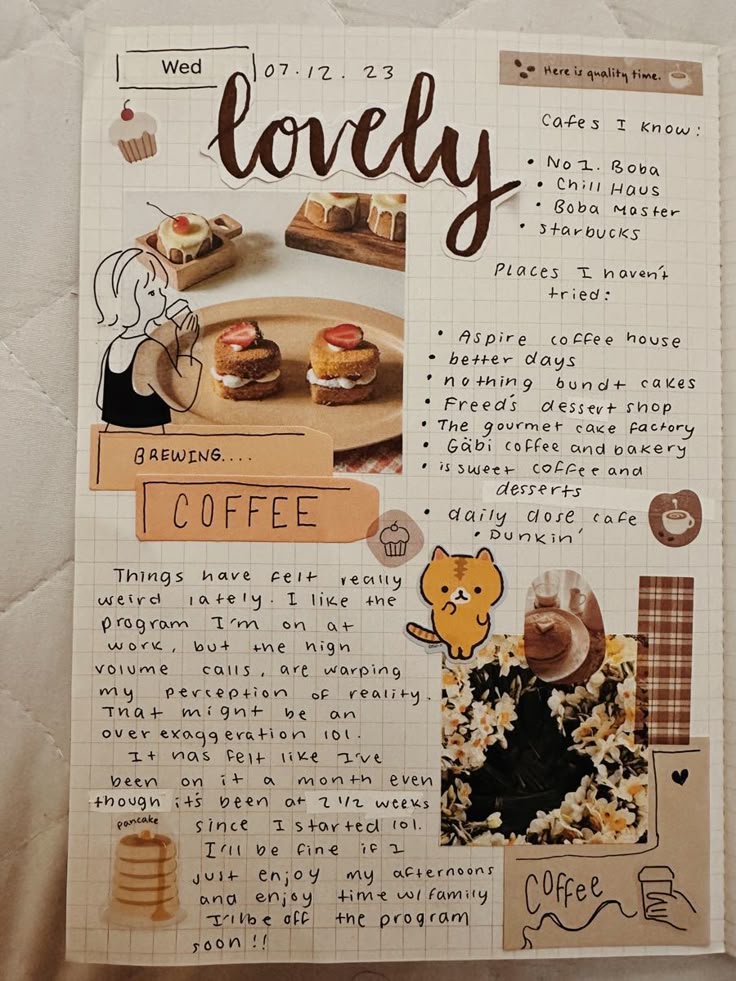 Wed
07.12.23
lovely
Here is quality time.
Cafes I know:
• No 1. Boba
• Chill Haus
• Boba Master
• Starbucks
Places I haven't
tried:
• Aspire coffee house
• better days
• nothing bundt cakes
• Freed's dessert shop
• The gourmet cake factory
• Gäbi coffee and bakery
• is sweet coffee and
desserts
• daily dose cafe
• Dunkin'
BREWING....
COFFEE
Things have felt really
weird lately. I like the
program I'm on at
work, but the high
volume calls, are warping
my perception of reality.
That might be an
over exaggeration lol.
It has felt like I've
been on it a month even
though it's been at 2 1/2 weeks
since I started lol.
I'll be fine if I
just enjoy my afternoons
and enjoy time w/ family
I'll be off the program
soon!!
pancake
Coffee